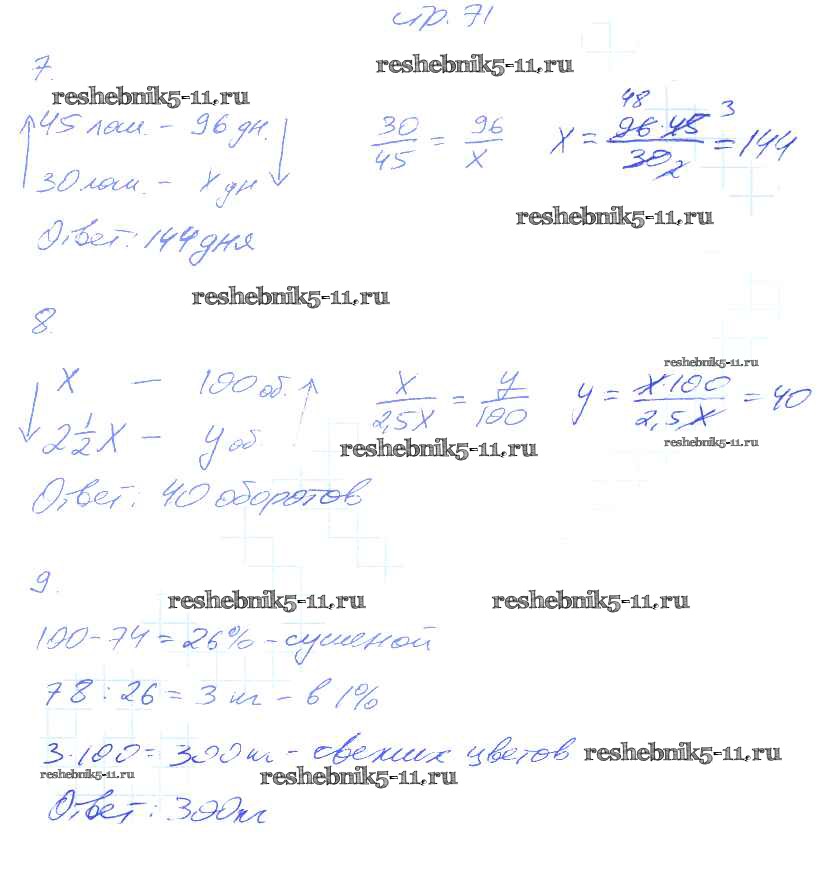 стр. 71
reshebnik5-11.ru
7.
reshebnik5-11.ru
45 лош. – 96 дн.
30 лош. – x дн
30/45 = 96/x
x = 96·45/30 = 144
48 3 2
reshebnik5-11.ru
Ответ: 144 дня
reshebnik5-11.ru
8.
reshebnik5-11.ru
x – 100 об.
2 1/2 x – y об
x/2,5x = y/100
y = x·100/2,5x = 40
reshebnik5-11.ru
reshebnik5-11.ru
Ответ: 40 оборотов
9.
reshebnik5-11.ru reshebnik5-11.ru
100 – 74 = 26% – сушеной
78 : 26 = 3 кг – в 1%
3·100 = 300 кг – свежих цветов reshebnik5-11.ru
reshebnik5-11.ru reshebnik5-11.ru
Ответ: 300кг